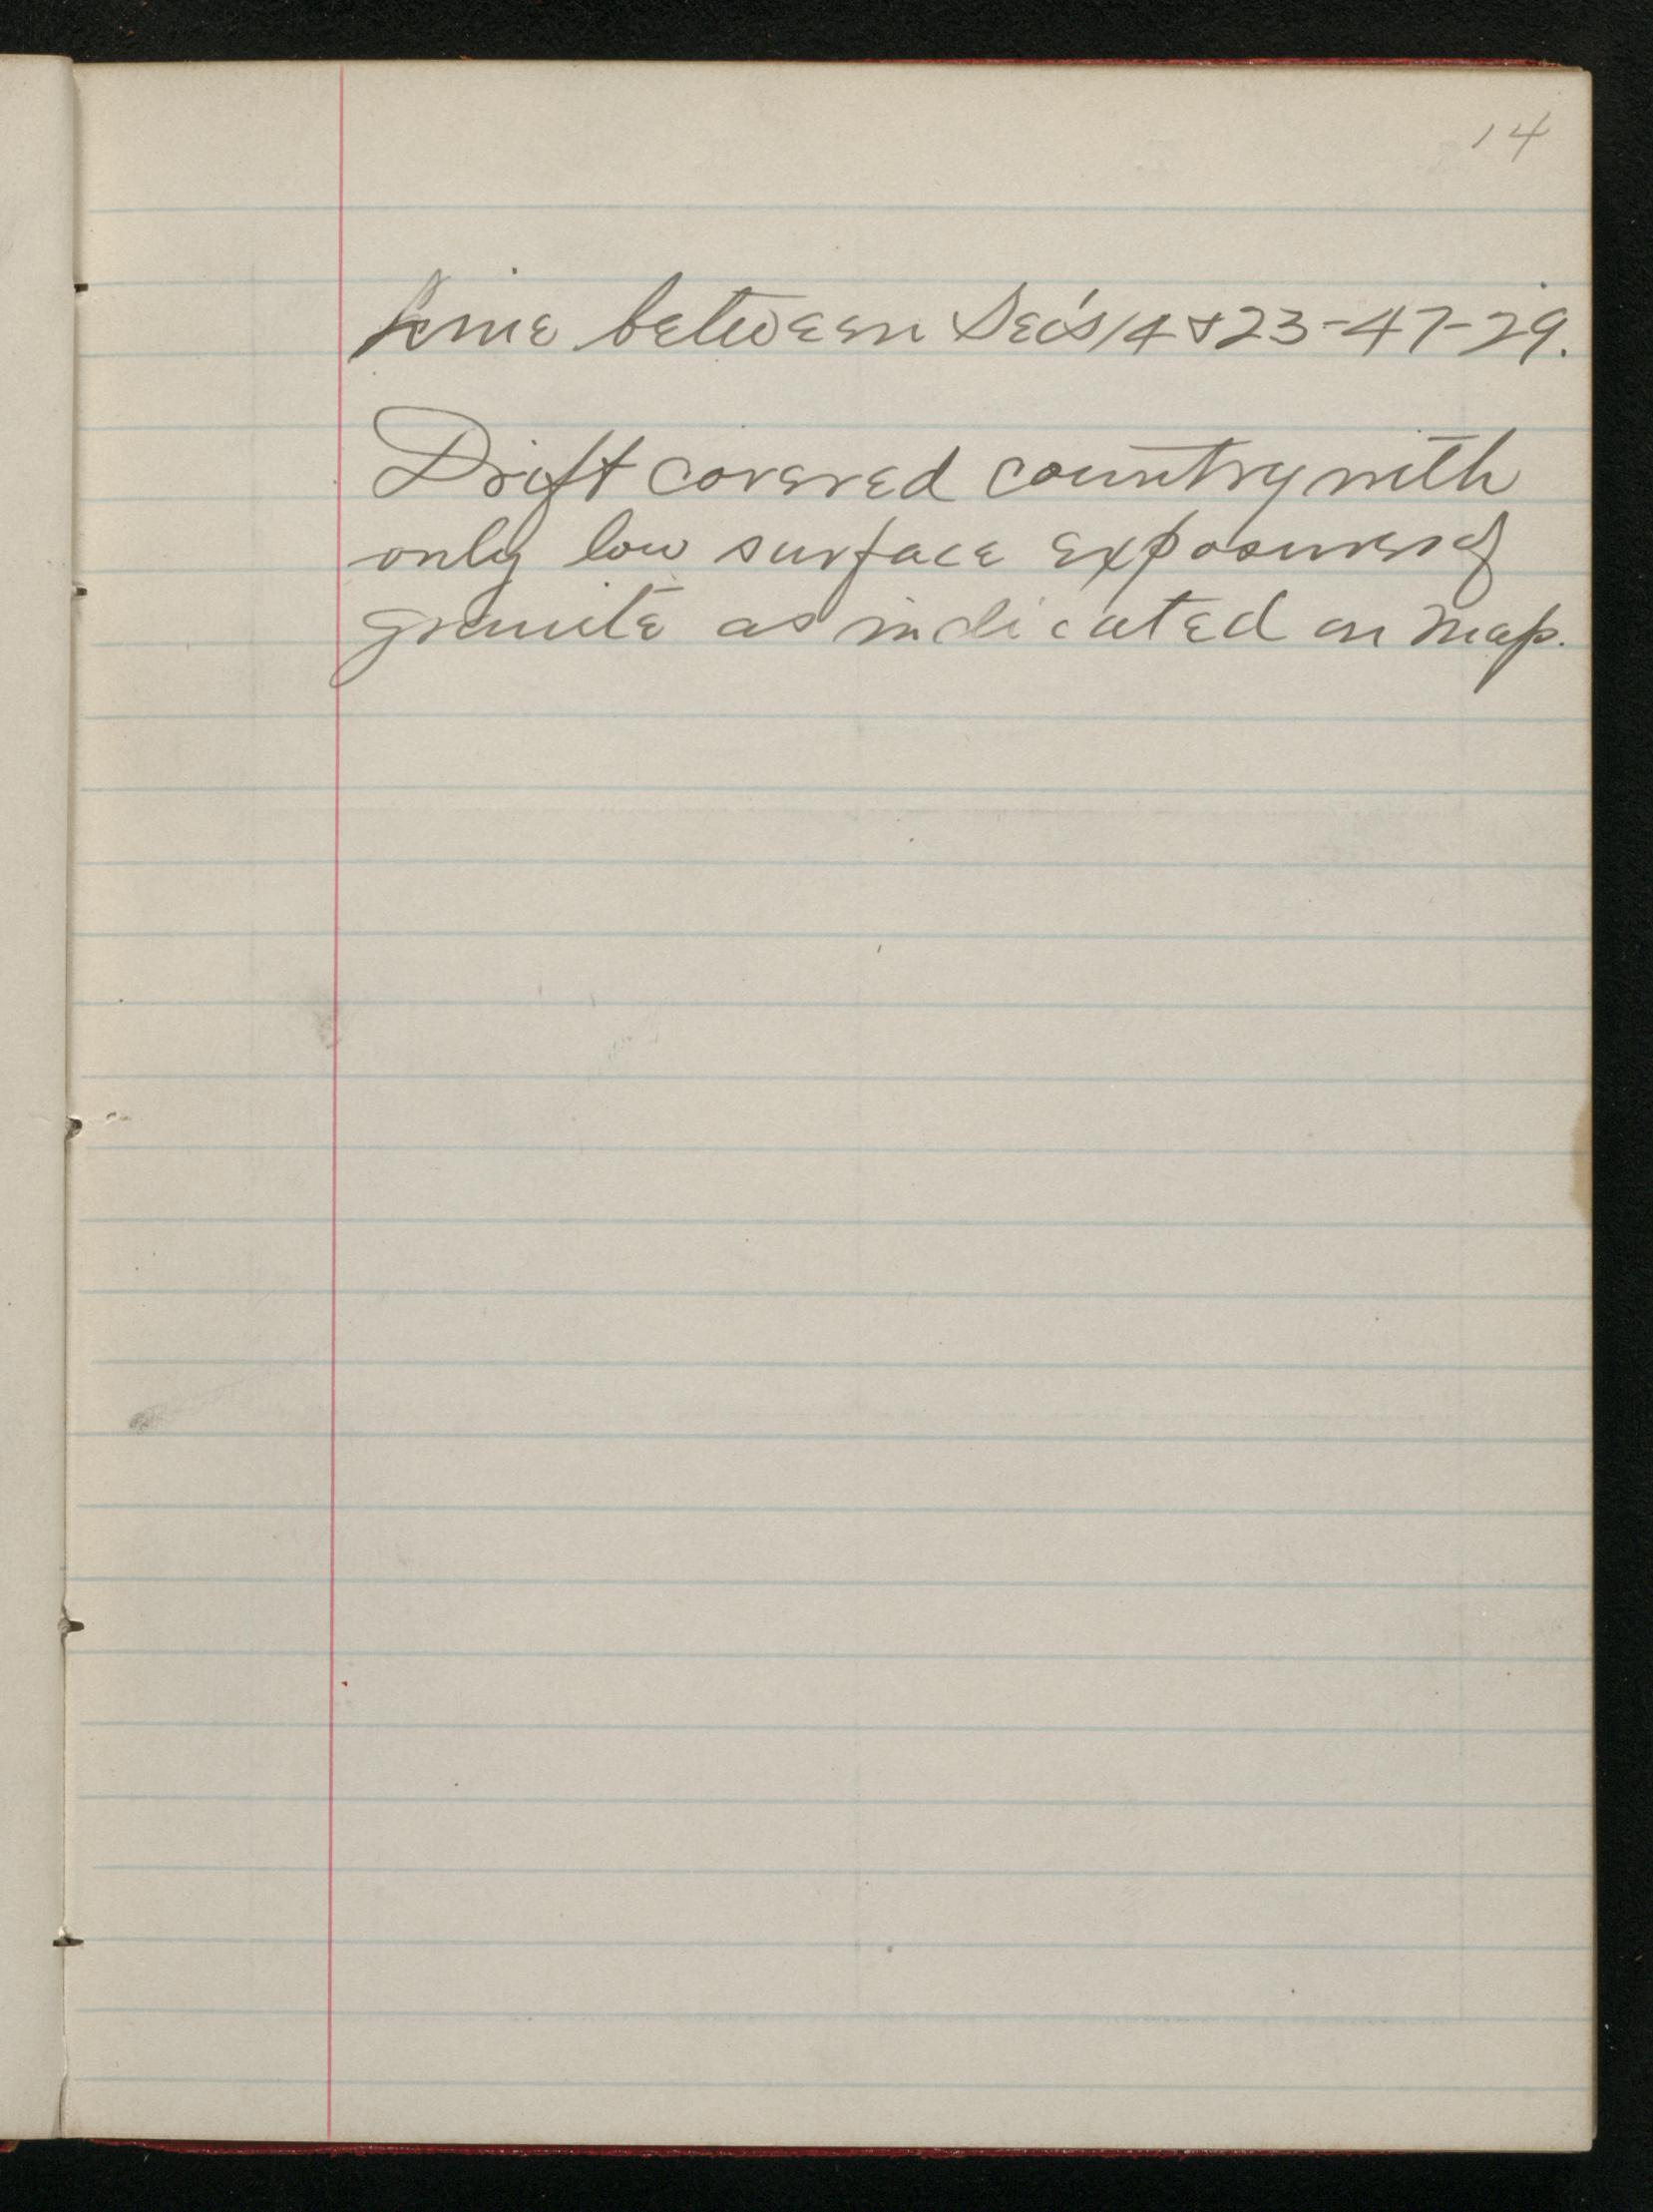 14
Line between Sec's 14 & 23-47-29.
Drift covered country with
only low surface exposures of
granite as indicated on map.